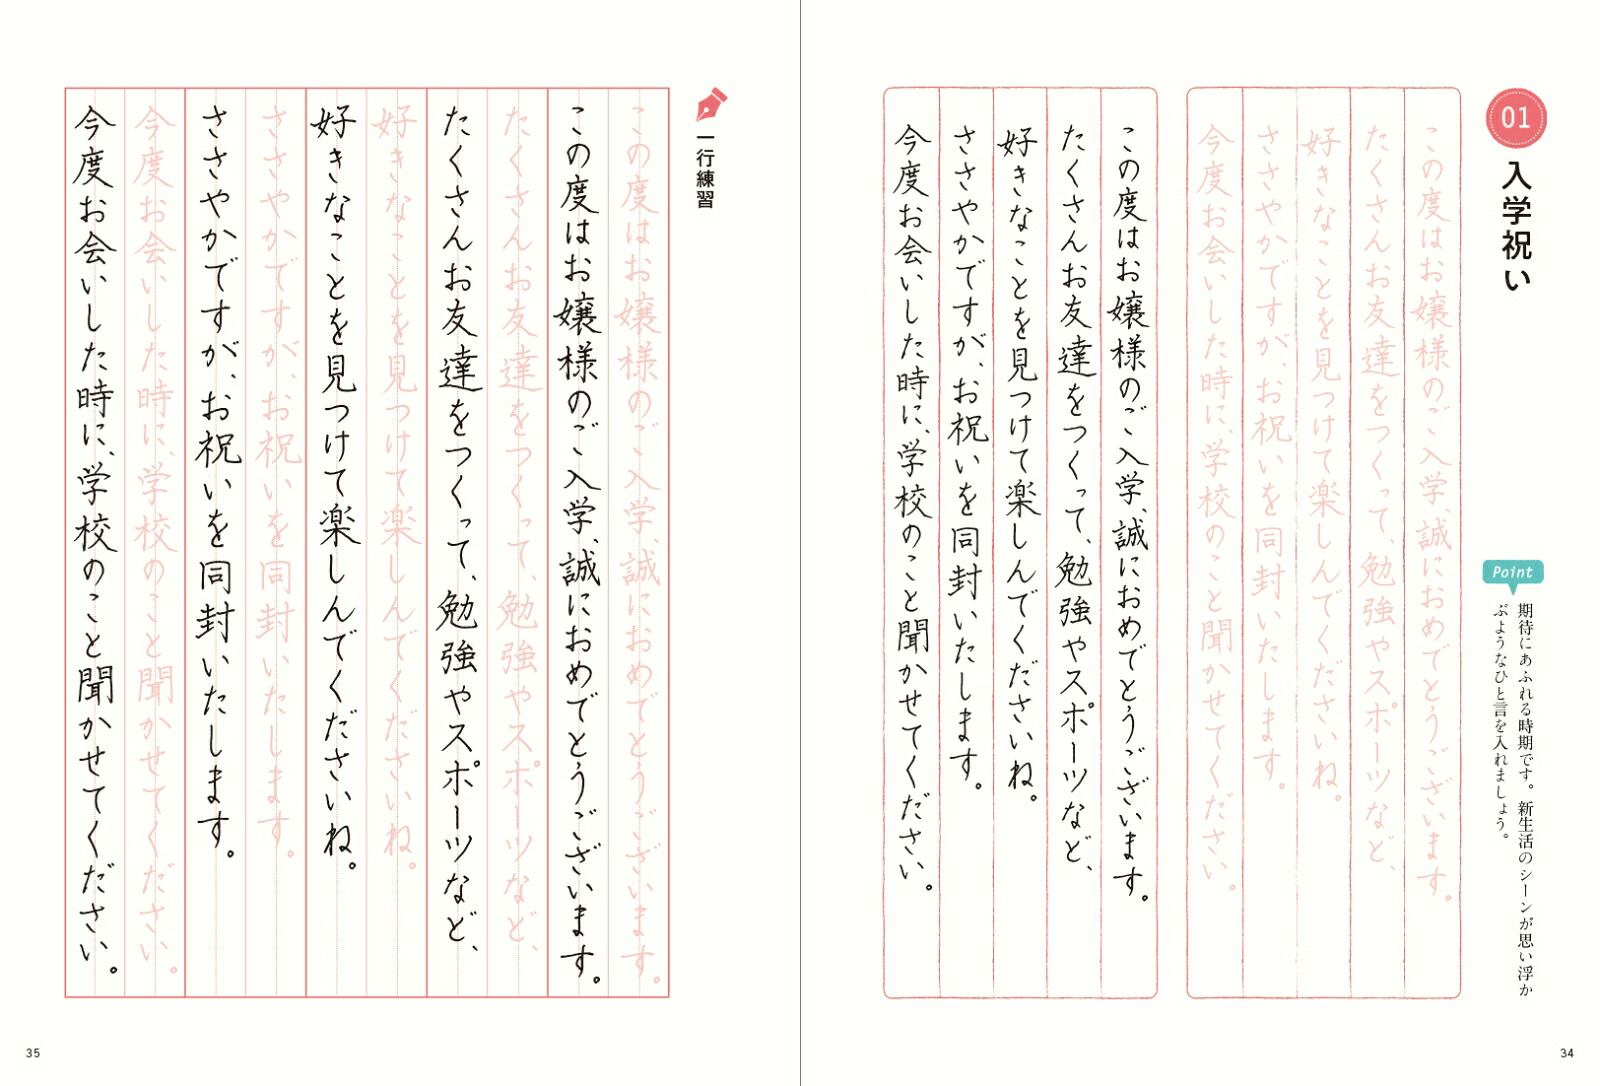 01
入学祝い
Point
期待にあふれる時期です。新生活のシーンが思い浮か
ぶようなひと言を入れましょう。
この度はお嬢様のご入学、誠におめでとうございます。
たくさんお友達をつくって、勉強やスポーツなど、
好きなことを見つけて楽しんでくださいね。
ささやかですが、お祝いを同封いたします。
今度お会いした時に、学校のこと聞かせてください。
この度はお嬢様のご入学、誠におめでとうございます。
たくさんお友達をつくって、勉強やスポーツなど、
好きなことを見つけて楽しんでくださいね。
ささやかですが、お祝いを同封いたします。
今度お会いした時に、学校のこと聞かせてください。
34
一行練習
この度はお嬢様のご入学、誠におめでとうございます。
この度はお嬢様のご入学、誠におめでとうございます。
たくさんお友達をつくって、勉強やスポーツなど、
たくさんお友達をつくって、勉強やスポーツなど、
好きなことを見つけて楽しんでくださいね。
好きなことを見つけて楽しんでくださいね。
ささやかですが、お祝いを同封いたします。
ささやかですが、お祝いを同封いたします。
今度お会いした時に、学校のこと聞かせてください。
今度お会いした時に、学校のこと聞かせてください。
35